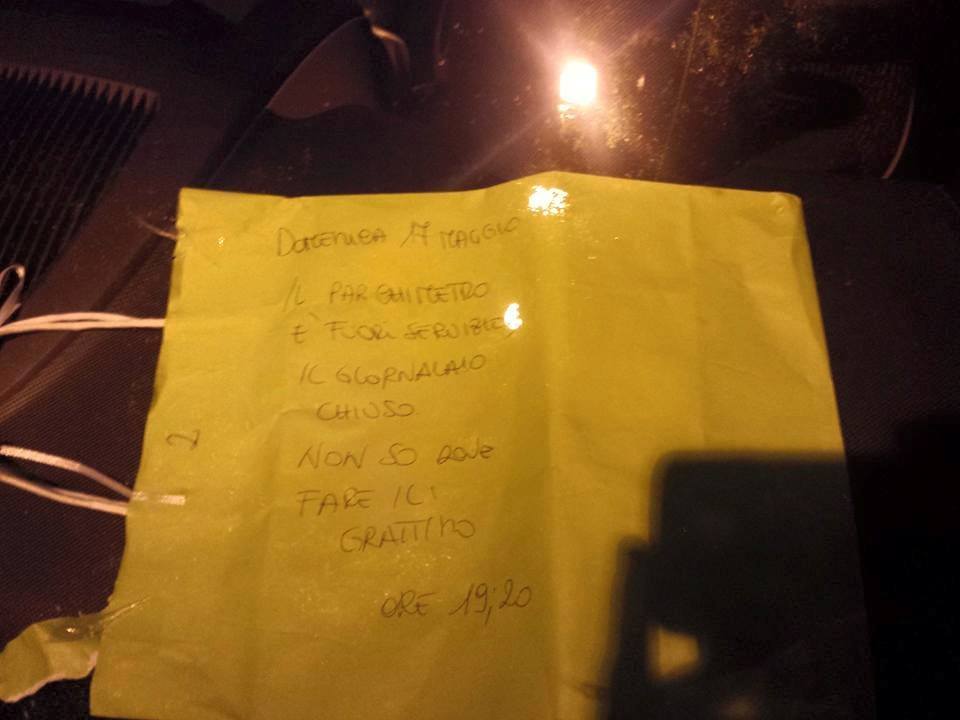 DOMENICA 17 MAGGIO
IL PARCHIMETRO
E' FUORI SERVIZIO
IL GIORNALAIO
CHIUSO
NON SO DOVE
FARE IL
GRATTINO
ORE 19,20
2